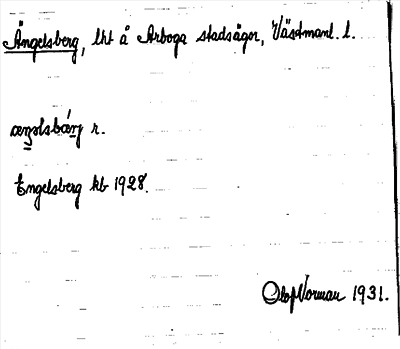 Ängelsberg, lht å Arboga stadsägor, Västmanl. l.
æŋəlsbærj r.
Engelsberg kb 1928.
Olof Norman 1931.